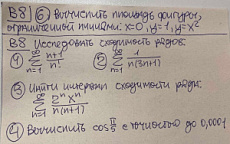 В8 | ⑥ Вычислить площадь фигуры,
ограниченной линиями: x=0, y=1, y=x²
В8 Исследовать сходимость рядов:
① ∞ Σ n=1 (n+1)/n! ② ∞ Σ n=1 1/(n(3n+1))
③ Найти интервал сходимости ряда:
∞ Σ n=1 2ⁿxⁿ/(n(n+1))
④ Вычислить cos π/5 с точностью до 0,0001